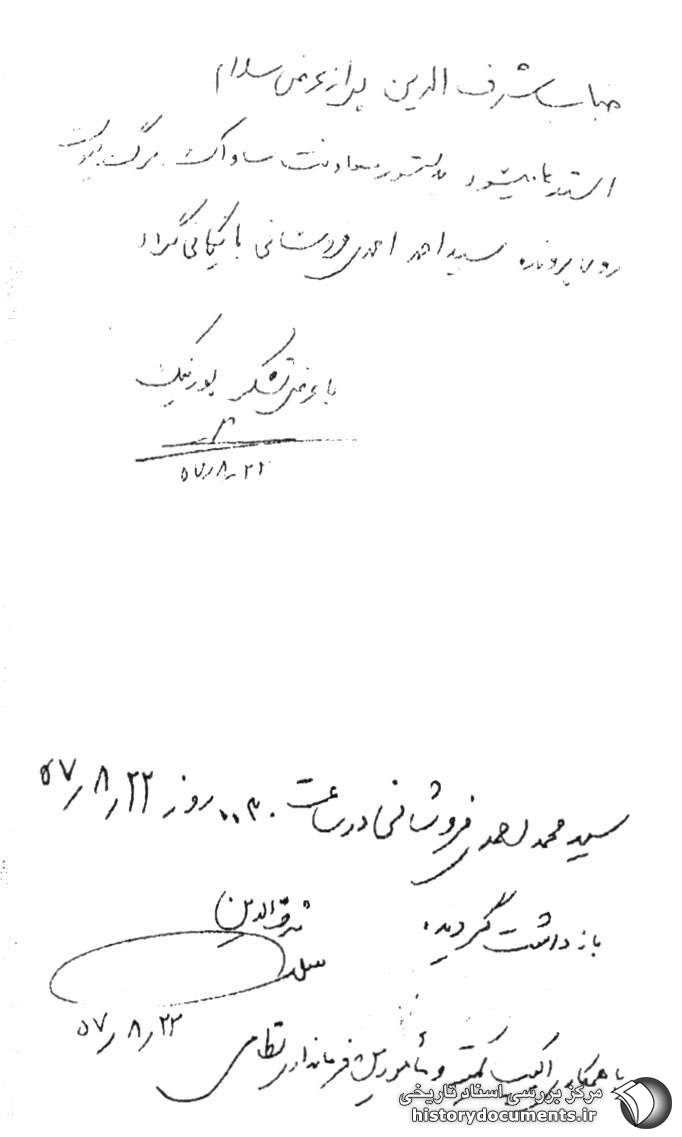 جناب شرف الدین پس از عرض سلام
استدعا میشود بدستور معاونت ساواک برگ
روی پرونده سید احمد احمدی فروشانی بایگانی گردد
با عرض تشکر پورنیک
۵۷٫۸٫۲۲
سید محمد احمدی فروشانی در ساعت روز ۵۷٫۸٫۲۲
بازداشت گردید.
شرف الدین
۵۷٫۸٫۲۲
با همکاری اکیپ کمیته و مأمورین فرمانداری نظامی
مرکز بررسی اسناد تاریخی
historydocuments.ir